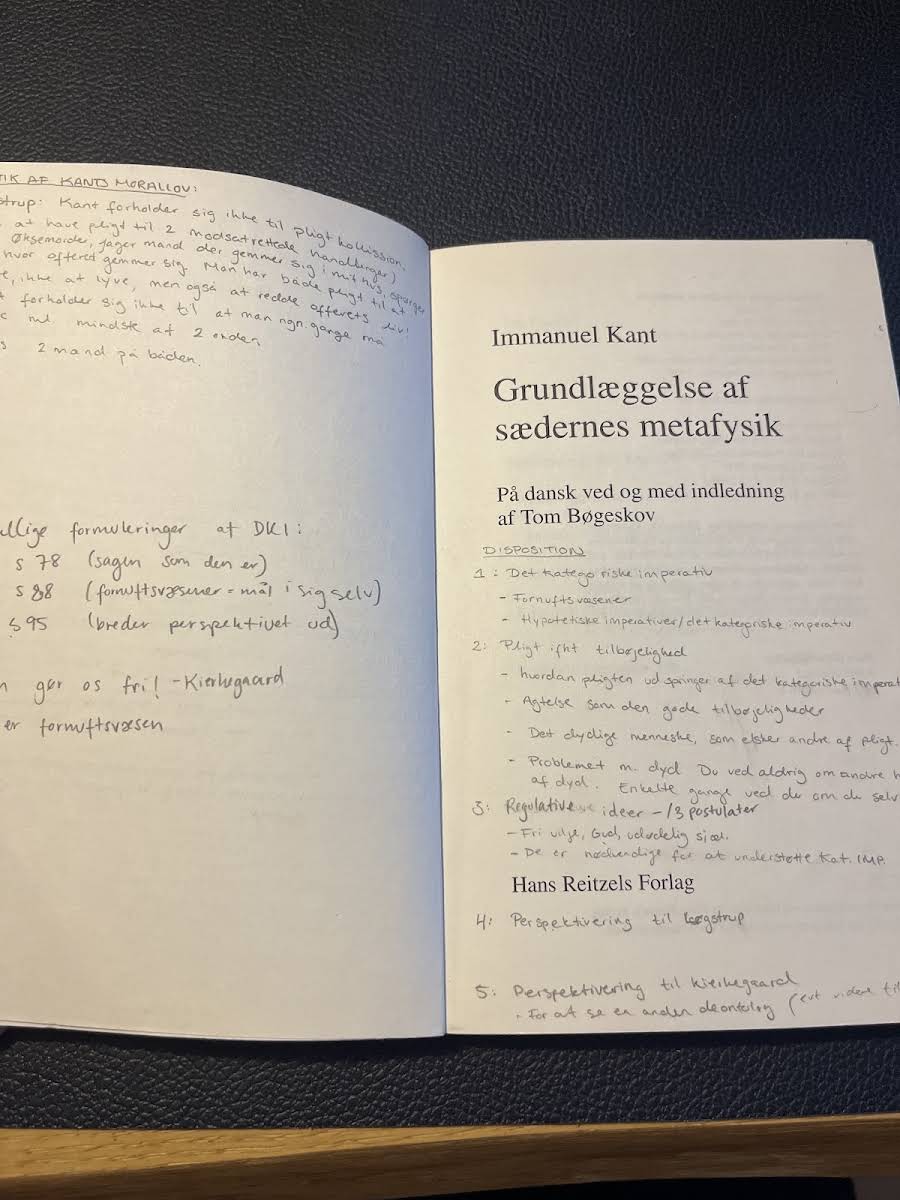 TIK AF KANTS MORALLOV:
strup: Kant forholder sig ikke til pligt kollission.
at have pligt til 2 modsatrettede handlinger)
Øksemorder, jager mand der gemmer sig i mit hus, spørger
hvor offeret gemmer sig. Man har både pligt til at
e, ikke at lyve, men også at redde offerets liv!
t forholder sig ikke til at man ngn. gange må
ml. mindste af 2 onder.
s 2 mand på båden.
llige formuleringer af DKI:
s 78 (sagen som den er)
s 88 (fornuftsvæsener = mål i sig selv)
s 95 (breder perspektivet ud)
n gør os fri! - Kierkegaard
er fornuftsvæsen
Immanuel Kant
Grundlæggelse af
sædernes metafysik
På dansk ved og med indledning
af Tom Bøgeskov
DISPOSITION
1: Det kategoriske imperativ
- Fornuftsvæsener
- Hypotetiske imperativer/det kategoriske imperativ
2: Pligt ifht tilbøjelighed
- hvordan pligten udspringer af det kategoriske imperat
- Agtelse som den gode tilbøjeligheder
- Det dydige menneske, som elsker andre af pligt.
- Problemet m. dyd Du ved aldrig om andre h
af dyd. Enkelte gange ved du om du selv
3: Regulative ideer - /3 postulater
- Fri vilje, Gud, udødelig sjæl.
- De er nødvendige for at understøtte Kat. IMP.
Hans Reitzels Forlag
4: Perspektivering til Løgstrup
5: Perspektivering til Kierkegaard
- For at se en anden deontolog (evt videre til